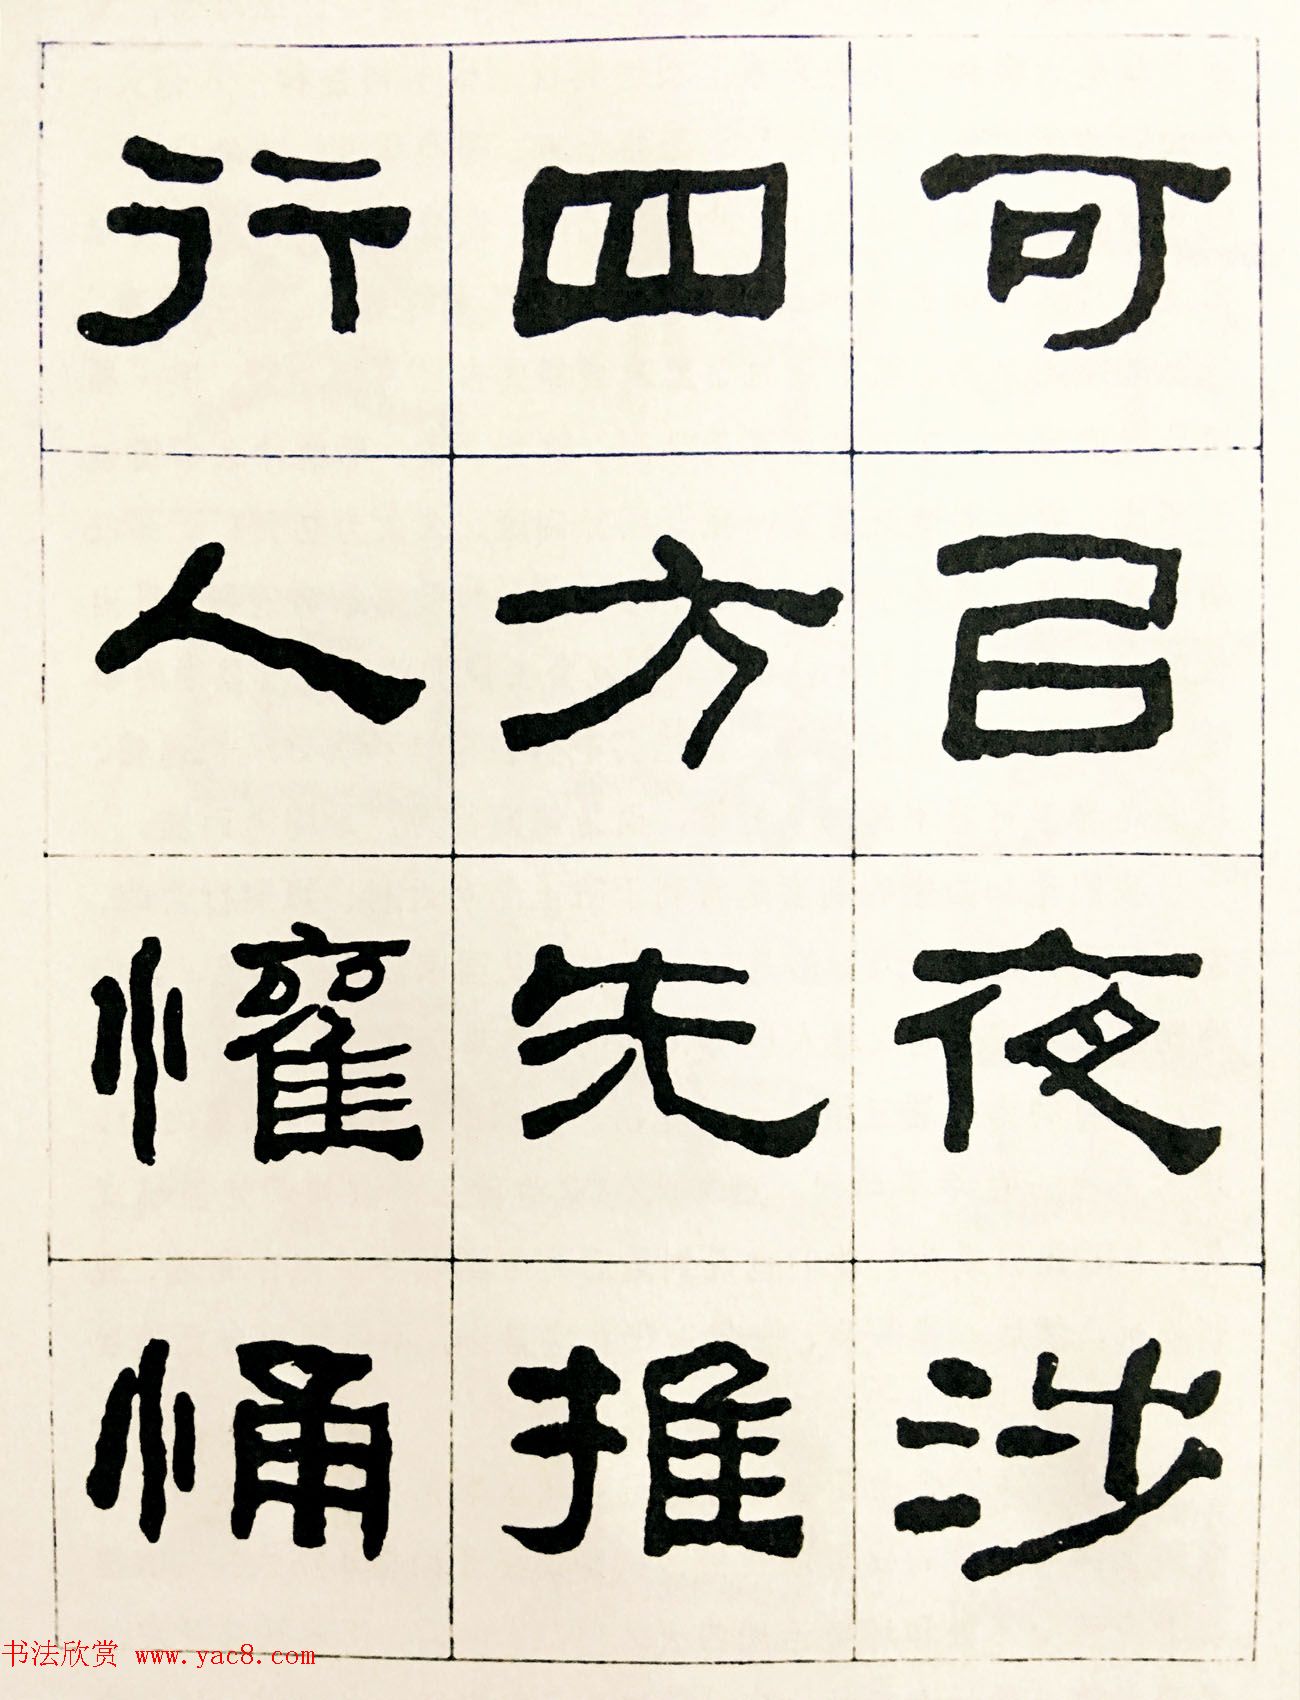 可㠯夜涉
四方无雍
行人懽悀
书法欣赏 www.yac8.com